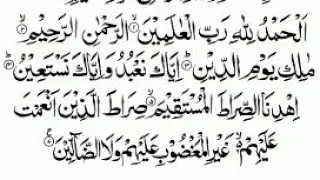 اَلْحَمْدُ لِلّٰهِ رَبِّ الْعٰلَمِيْنَ ۙ۝۱ الرَّحْمٰنِ الرَّحِيْمِ ۙ۝۲
مٰلِكِ يَوْمِ الدِّيْنِ ؕ۝۳ اِيَّاكَ نَعْبُدُ وَاِيَّاكَ نَسْتَعِيْنُ ؕ۝۴
اِهْدِنَا الصِّرَاطَ الْمُسْتَقِيْمَ ۙ۝۵ صِرَاطَ الَّذِيْنَ اَنْعَمْتَ
عَلَيْهِمْ ۙ۝۶ غَيْرِ الْمَغْضُوْبِ عَلَيْهِمْ وَلَا الضَّآلِّيْنَ ۝۷